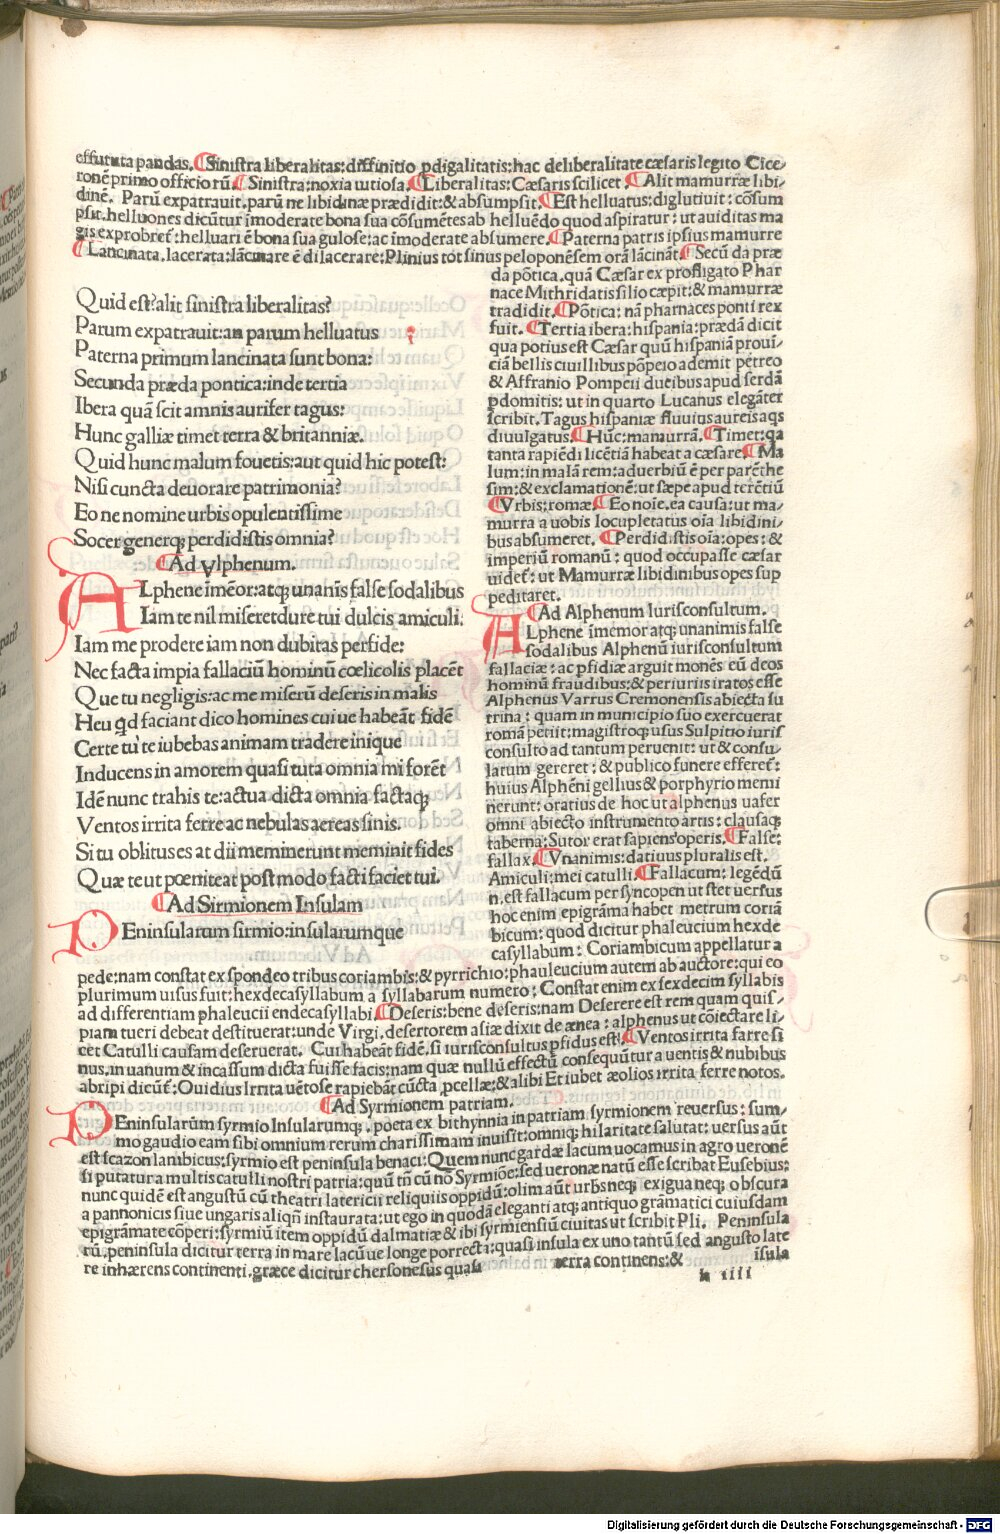 effututa pandas. Sinistra liberalitas: diffinitio ꝓdigalitatis: hac deliberalitate cæsaris legito Cice-
ronē primo officiorū. Sinistra: noxia uitiosa. Liberalitas: Cæsaris scilicet. Alit mamurræ libi-
dinē. Parū expatrauit. parū ne libidinæ prædidit: & absumpsit. Est helluatus: diglutiuit: cōsum
psit. helluones dicūtur īmoderate bona sua cōsumētes ab helluēdo quod aspiratur: ut auiditas ma
gis exprobret̄: helluari ē bona sua gulose: ac īmoderate absumere. Paterna patris ipsius mamurre
Lancinata. lacerata: lācinare ē dilacerare: Plinius tot sinus peloponēsem orā lācināt. Secū da præ
da pōtica. quā Cæsar ex profligato Phar
nace Mithridatis filio cæpit: & mamurræ
tradidit. Pōtica: nā pharnaces ponti rex
fuit. Tertia ibera: hispania: prædā dicit
qua potius est Cæsar quū hispaniā proui-
ciā bellis ciuilibus pōpeio ademit petreo
& Affranio Pompeii ducibus apud ilerdā
ꝓdomitis: ut in quarto Lucanus elegāter
scribit. Tagus hispaniæ fluuius aureis aqs
diuulgatus. Hūc: mamurrā. Timet: qa
tanta rapiēdi licētiā habeat a cæsare. Ma
lum: in malā rem: aduerbiū ē per parēthe
sim: & exclamationē: ut sæpe apud terētiū
Vrbis: romæ. Eo noīe. ea causa: ut ma-
murra a uobis locupletatus oīa libidini-
bus absumeret. Perdidistis oīa: opes: &
imperiū romanū: quod occupasse cæsar
uidet̄: ut Mamurræ libidinibus opes sup
peditaret.
Quid est? alit sinistra liberalitas?
Parum expatrauit: an parum helluatus
Paterna primum lancinata sunt bona:
Secunda præda pontica: inde tertia
Ibera quā scit amnis aurifer tagus:
Hunc galliæ timet terra & britanniæ.
Quid hunc malum fouetis: aut quid hic potest:
Nisi cuncta deuorare patrimonia?
Eo ne nomine urbis opulentissime
Socer generqꝫ perdidistis omnia?
Ad Vlphenum.
ALphene imēor: atqꝫ unanīs false sodalibus
Iam te nil miseret dure tui dulcis amiculi.
Iam me prodere iam non dubitas perfide:
Nec facta impia fallaciū hominū cœlicolis placēt
Que tu negligis: ac me miserū deseris in malis
Heu qd faciant dico homines cui ue habeāt fidē
Certe tu te iubebas animam tradere inique
Inducens in amorem quasi tuta omnia mi forēt
Idē nunc trahis te: actua dicta omnia factaqꝫ
Ventos irrita ferre ac nebulas aereas sinis.
Si tu oblitus es at dii meminerunt meminit fides
Quæ te ut pœniteat postmodo facti faciet tui.
Ad Sirmionem Insulam
PEninsularum sirmio: insularumque
Ad Alphenum Iurisconsultum.
ALphene īmemor atqꝫ unanimis false
sodalibus Alphenū iurisconsultum
fallaciæ: ac ꝑfidiæ arguit monēs eū deos
hominū fraudibus: & periuriis iratos esse
Alphenus Varrus Cremonensis abiecta su
trina: quam in municipio suo exercuerat
romā petiit: magistroqꝫ usus Sulpitio iuris
consulto ad tantum peruenit: ut & consu-
latum gereret: & publico funere efferet̄:
huius Alphēni gellius & porphyrio memi
nerunt: oratius de hoc ut alphenus uafer
omni abiecto instrumento artis: clausaqꝫ
taberna: Sutor erat sapiens operis. False:
fallax. Vnanimis: datiuus pluralis est.
Amiculi: mei catulli. Fallacum: legēdū
n. est fallacum per syncopen ut stet uersus
hoc enim epigrāma habet metrum coriā
bicum: quod dicitur phaleucium hexde
casyllabum: Coriambicum appellatur a
pede: nam constat ex spondeo tribus coriambis: & pyrrichio: phauleucium autem ab auctore: qui eo
plurimum uisus fuit: hexdecasyllabum a syllabarum numero: Constat enim ex sexdecim syllabis
ad differentiam phaleucii endecasyllabi. Deseris: bene deseris: nam Deserere est rem quam quis-
piam tueri debeat destituerat: unde Virgi. desertorem asiæ dixit de ænea: alphenus ut cōiectare li-
cet Catulli causam deseruerat. Cui habeāt fidē. si iurisconsultus ꝑfidus est. Ventos irrita farre si
nus. in uanum & incassum dicta fuisse facis: nam quæ nullū effectū consequūtur a uentis & nubibus
abripi dicūt̄: Ouidius Irrita uētose rapiebāt cūcta ꝓcellæ: & alibi Et iubet æolios irrita ferre notos.
Ad Syrmionem patriam.
PEninsularūm syrmio Insularumqꝫ. poeta ex bithynnia in patriam syrmionem reuersus: sum-
mo gaudio eam sibi omnium rerum charissimam inuisit: omniqꝫ hilaritate salutat: uersus aūt
est scazon Iambicus: syrmio est peninsula benaci: Quem nunc gardæ lacum uocamus in agro ueronē
si putatur a multis catulli nostri patria: quū tn̄ cū nō Syrmiōe: sed ueronæ natū esse scribat Eusebius:
nunc quidē est angustū cū theatri latericii reliquiis oppidū: olim aūt urbs neqꝫ exigua neqꝫ obscura
a pannonicis siue ungaris aliqn̄ instaurata: ut ego in quodā eleganti atqꝫ antiquo grāmatici cuiusdam
epigrāmate cōperi: syrmiū item oppidū dalmatiæ & ibi syrmiensiū ciuitas ut scribit Pli. Peninsula
rū. peninsula dicitur terra in mare lacū ue longe porrecta: quasi insula ex uno tantū sed angusto late
re inhærens continenti. græce dicitur chersonesus quasi terra continens: & isula
h iiii
Digitalisierung gefördert durch die Deutsche Forschungsgemeinschaft - DFG